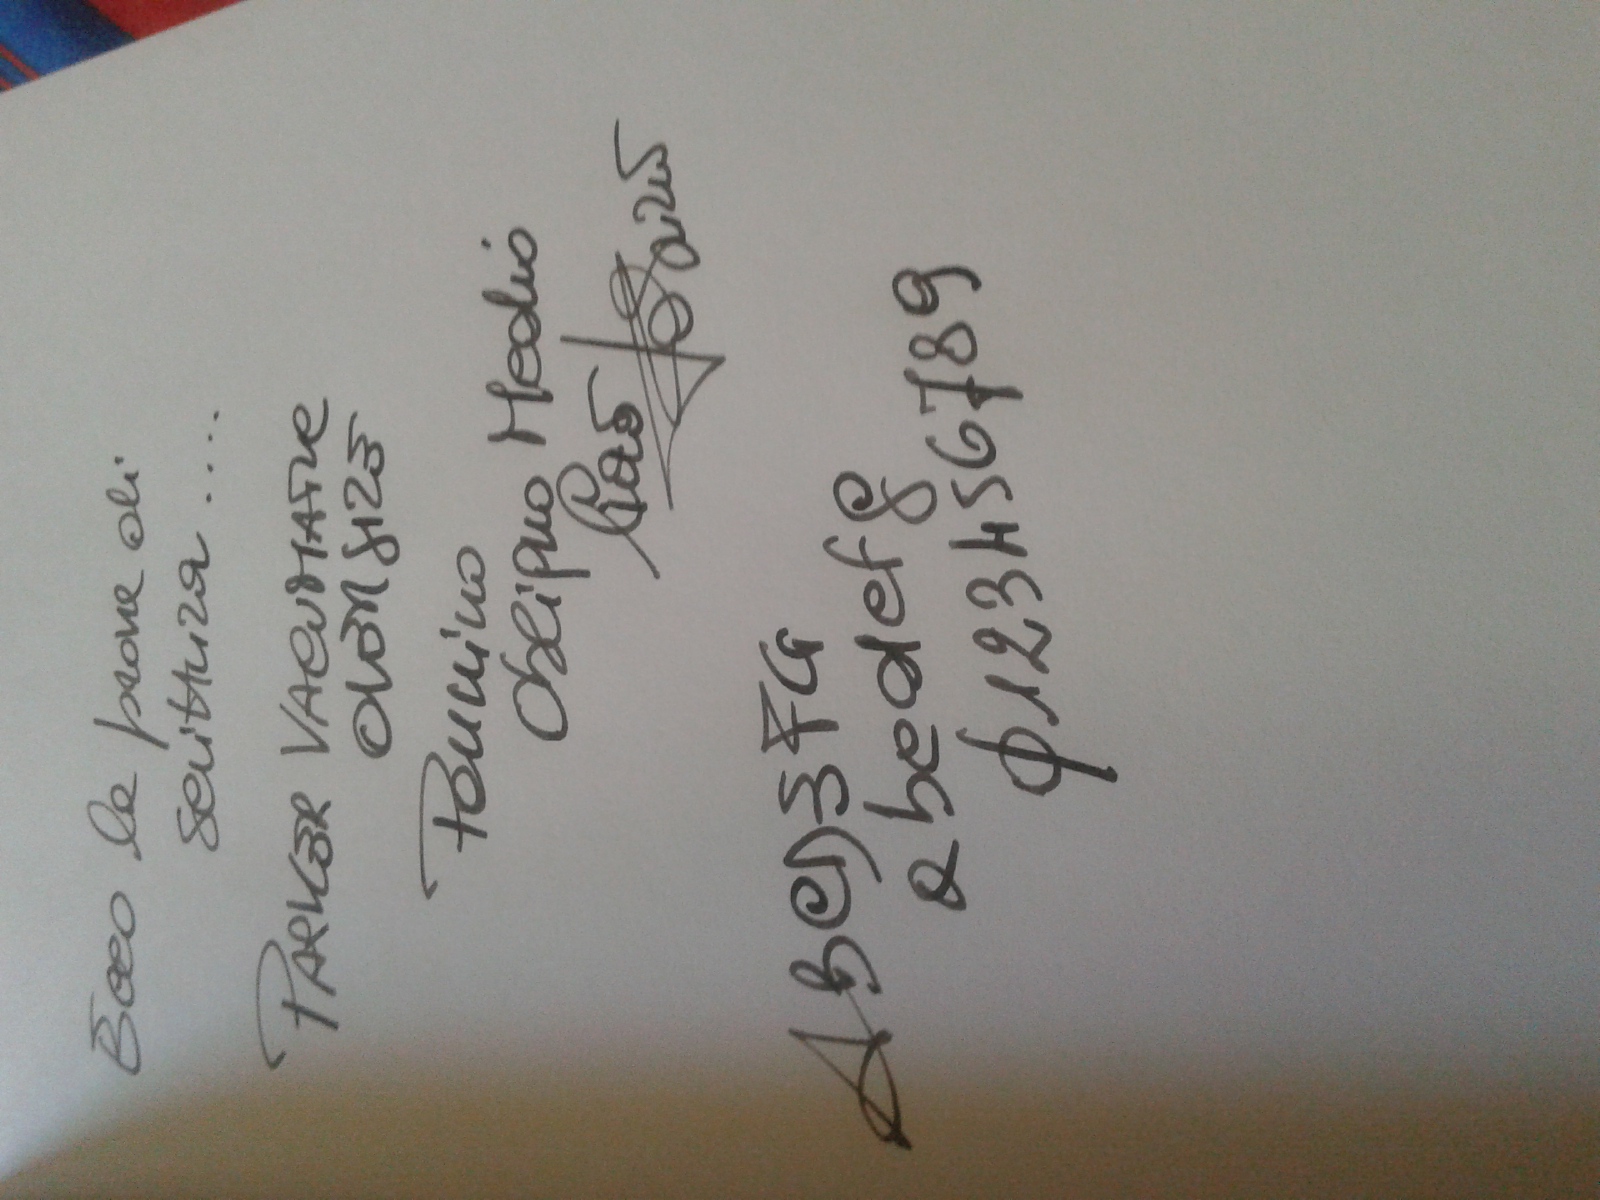 Ecco le prove di
scrittura ....
PARKER VACUMATIC
OVERSIZE
Pennino
Obliquo Medio
ABCDEFG
abcdefg
0123456789